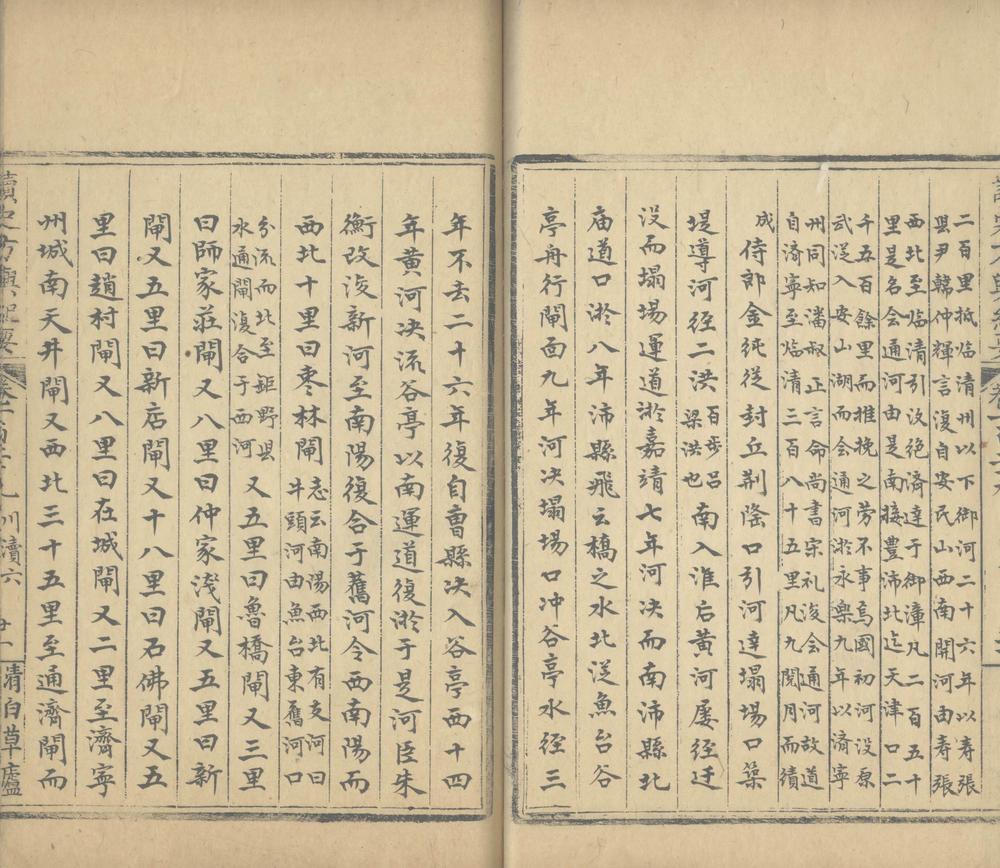 二百里抵临清州以下御河二十六年以寿張
县尹韓仲輝言復自安民山西南開河由寿張
西北至临清引汶绝济達于御漳凡二百五十
里是名会通河由是南接豐沛北迄天津口二
千五百餘里而推挽之劳不事焉國初河没原
武淤入安山湖而会通河淤永樂九年以濟寧
州同知潘叔正言命尚書宋礼浚会通河故道
自濟寧至临清三百八十五里凡九閱月而績
成
侍郎金纯従封丘荆隆口引河達塌場口築
堤導河径二洪百步吕梁洪也南入淮后黄河屡径迁
没而塌場運道淤嘉靖七年河决而南沛縣北
庙道口淤八年沛縣飛云橋之水北従魚台谷
亭舟行閘面九年河决塌場口冲谷亭水径三
年不去二十六年復自曹縣决入谷亭西十四
年黄河决流谷亭以南運道復淤于是河臣朱
衡改浚新河至南陽復合于舊河今西南陽而
西北十里曰枣林閘志云南陽西北有支河曰牛頭河由魚台東舊河口
分流而北至鉅野县水通閘復合于西河又五里曰魯橋閘又三里
曰師家莊閘又八里曰仲家淺閘又五里曰新
閘又五里曰新店閘又十八里曰石佛閘又五
里曰趙村閘又八里曰在城閘又二里至濟寧
州城南天井閘又西北三十五里至通濟閘而
讀史方輿紀要
川瀆六
清白草廬